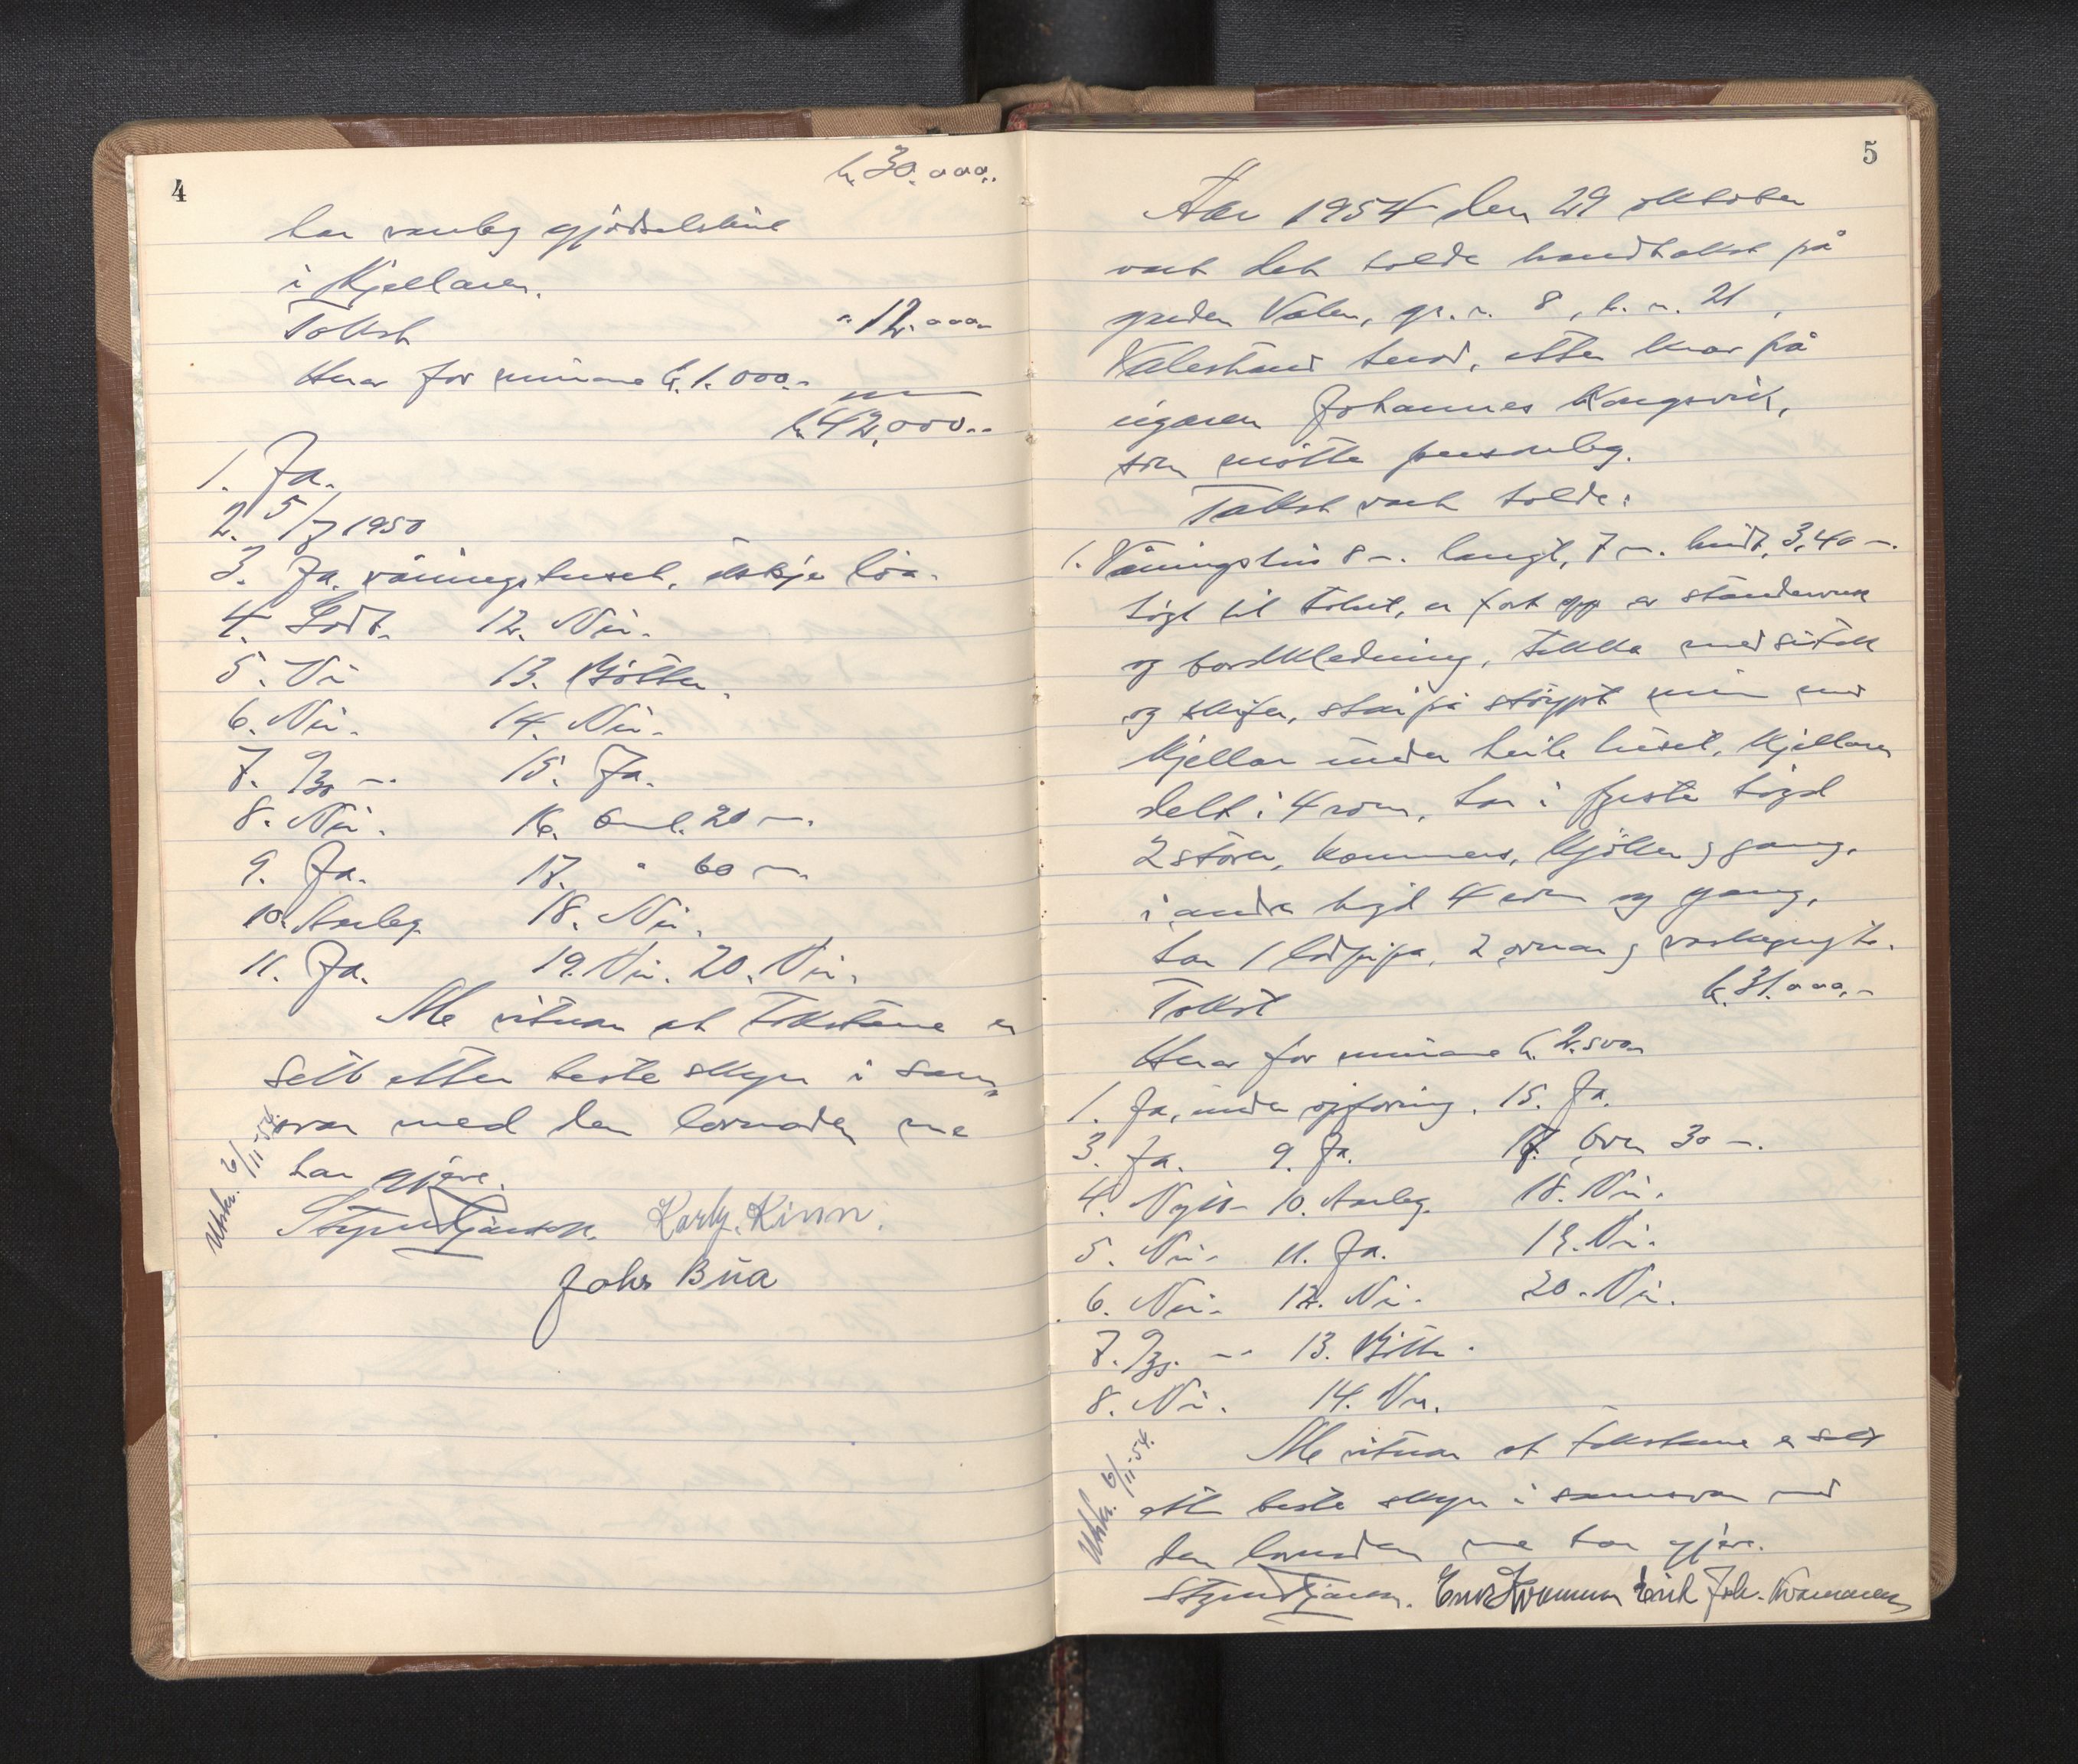 4
kr. 30.000,-
har vanleg gjødselshus
i kjellaren.
Takst " 12.000,-
Herav for murane kr. 1.000,-
kr. 42.000,-
1. Ja.
2. 5/7 1950
3. Ja, våningshuset, ikkje löa.
4. Godt. 12. Nei.
5. Nei 13. Bøtter.
6. Nei. 14. Nei.
7. 9/30 m. 15. Ja.
8. Nei. 16. Oml. 20 m.
9. Ja. 17. " 60 m.
10. Vanleg 18. Nei.
11. Ja. 19. Nei. 20. Nei.
Me vitnar at takstane er
sett etter beste skjyn i sam-
svar med den lovnaden me
har gjeve.
Utskr. 6/11-54.
Karl J. Kinn.
Johs Bua
5
År 1954 den 29 oktober
vart det halde brandtakst på
garden Valen, gr. n. 8, b. n. 21,
Valestrand herad, etter krav på
eigaren Johannes Kongsvik,
som møtte personleg.
Takst vart halde:
1. Våningshus 8 m. langt, 7 m. breidt, 3,40 m.
högt til taket, er ført opp av standerverk
og bordkledning, tekka med sutak
og skifer, står på støypt mur med
kjellar under heile huset, kjellaren
delt i 4 rom, har i fyrste högd
2 stover, kammers, kjøken og gang,
i andre högd 4 rom og gang,
har 1 ladpipa, 2 omnar og vaskegryte.
Takst kr. 31.000,-
Herav for murane kr. 2.500,-
1. Ja, under oppføring. 15. Ja.
3. Ja. 9. Ja. 17. Over 30 m.
4. Nytt 10. Vanleg. 18. Nei.
5. Nei. 11. Ja. 19. Nei.
6. Nei. 12. Nei. 20. Nei.
7. 9/35 m. 13. Bøtte.
8. Nei. 14. Nei.
Me vitnar at takstane er sett
etter beste skjyn i samsvar med
den lovnaden me har gjeve.
Utskr. 6/11-54.
Erik Joh. Kvammen